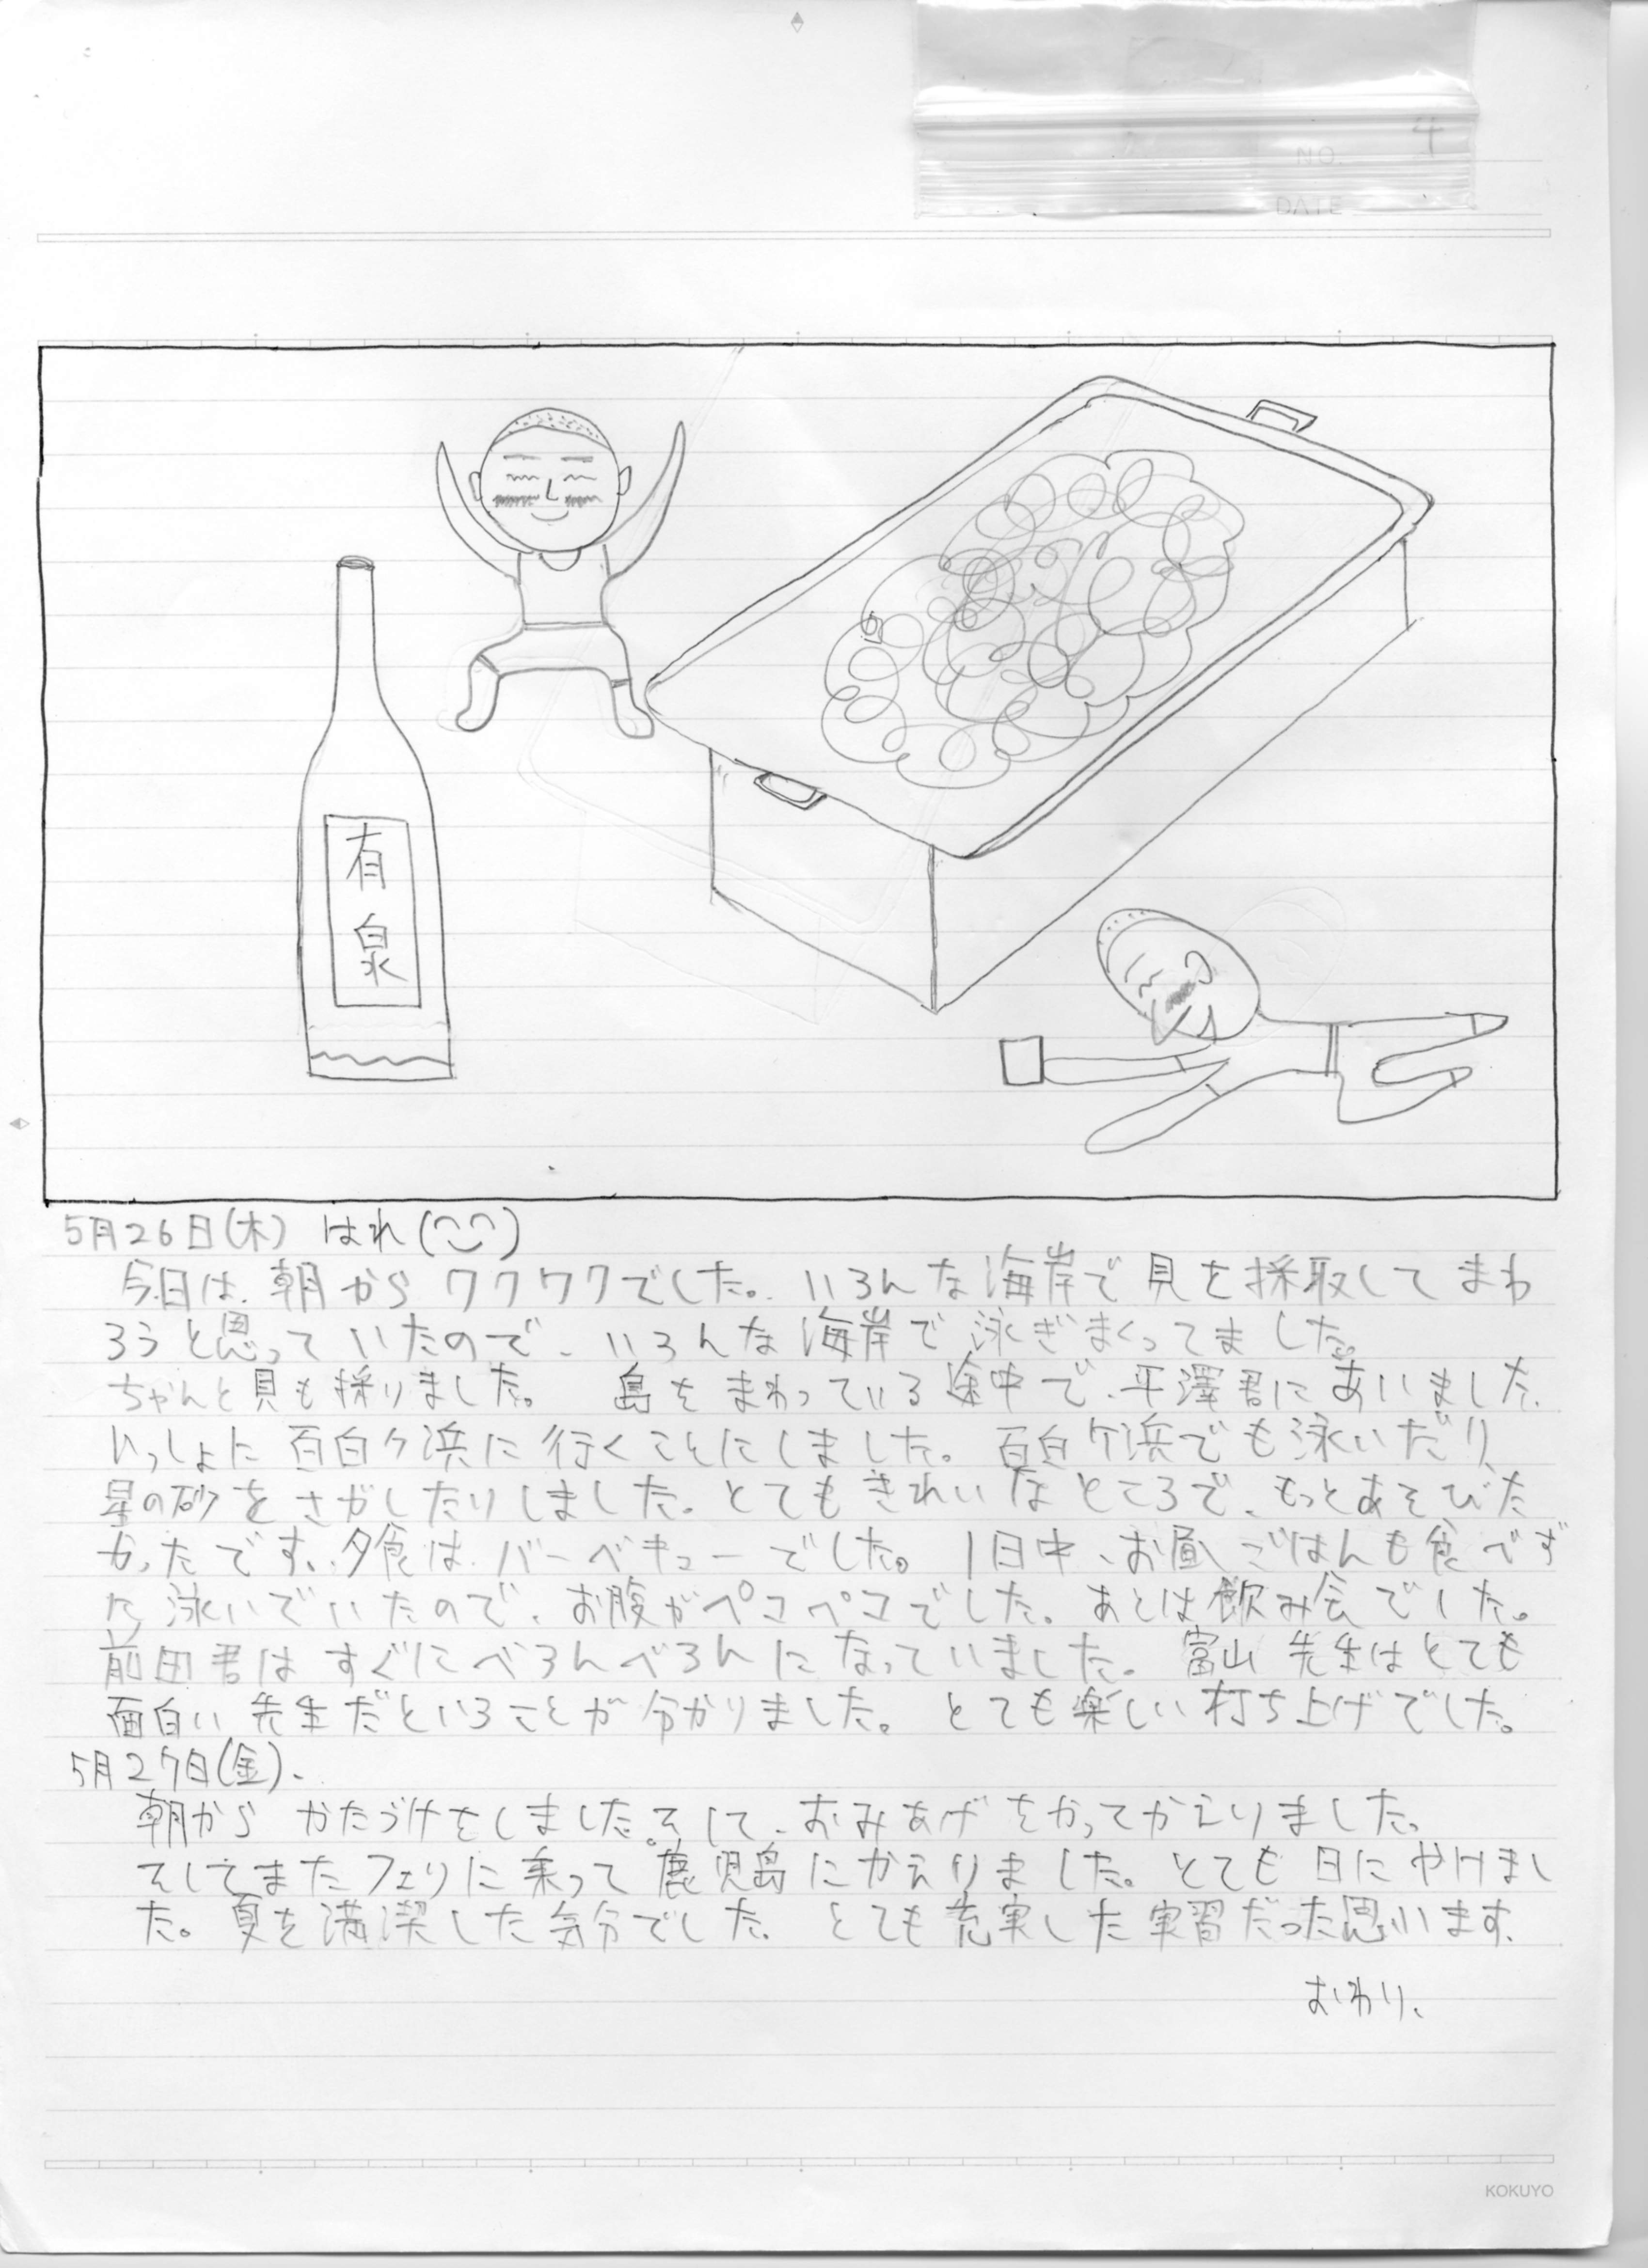 NO. 4
DATE
有
泉
5月26日(木) はれ(◠‿◠)
今日は、朝から ワクワクでした。いろんな海岸で貝を採取してまわ
ろうと思っていたので、いろんな海岸で泳ぎまくってました。
ちゃんと貝も採りました。 島をまわっている途中で、平澤君にあいました、
いっしょに 百白ヶ浜に行くことにしました。 百白ケ浜でも泳いだり、
星の砂をさがしたりしました。とてもきれいなところで、もっとあそびた
かったです。夕食は、バーベキューでした。1日中、お昼ごはんも食べず
に泳いでいたので、お腹がペコペコでした。あとは飲み会でした。
前田君はすぐにべろんべろんになっていました。 富山先生はとても
面白い先生だということが分かりました。 とても楽しい打ち上げでした。
5月27日(金)、
朝から かたづけをしました。そして、おみあげをかってかえりました。
そしてまたフェリに乗って鹿児島にかえりました。とても日にやけまし
た。夏を満喫した気分でした。 とても充実した実習だった思います、
おわり、
KOKUYO